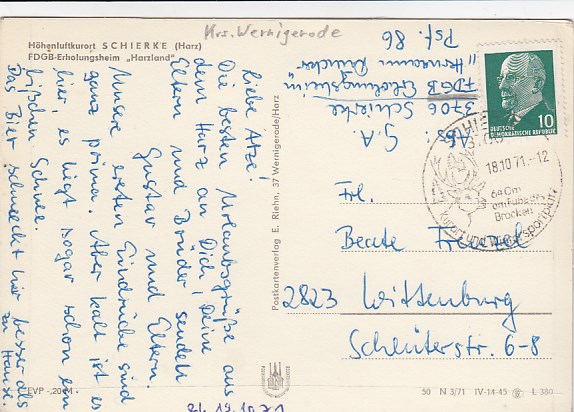 Krs. Wernigerode
Höhenluftkurort SCHIERKE (Harz)
FDGB-Erholungsheim „Harzland"
Liebe Atze!
Die besten Urlaubsgrüße aus
dem Harz an Dich, Deine
Eltern und Brüder sendet
Gustav und Eltern.
Unsere ersten Eindrücke sind
ganz prima. Aber kalt ist es
hier, es liegt sogar schon ein
bißchen Schnee.
Das Bier schmeckt hier besser als
zu Hause
Postkartenverlag E. Riehn, 37 Wernigerode/Harz
Abs. G. A.
3706 Schierke
FDGB Erholungsheim
„Hermann
Psf. 86
10
DEUTSCHE
DEMOKRATISCHE REPUBLIK
18.10.71.-12
640m
am Fuße des
Brocken
Kurort und Wintersportplatz
Frl.
Beate Frenzel
2823 Wittenburg
Schleuterstr. 6-8
EVP -,20 M
50 N 3/71 IV-14-45 L 380